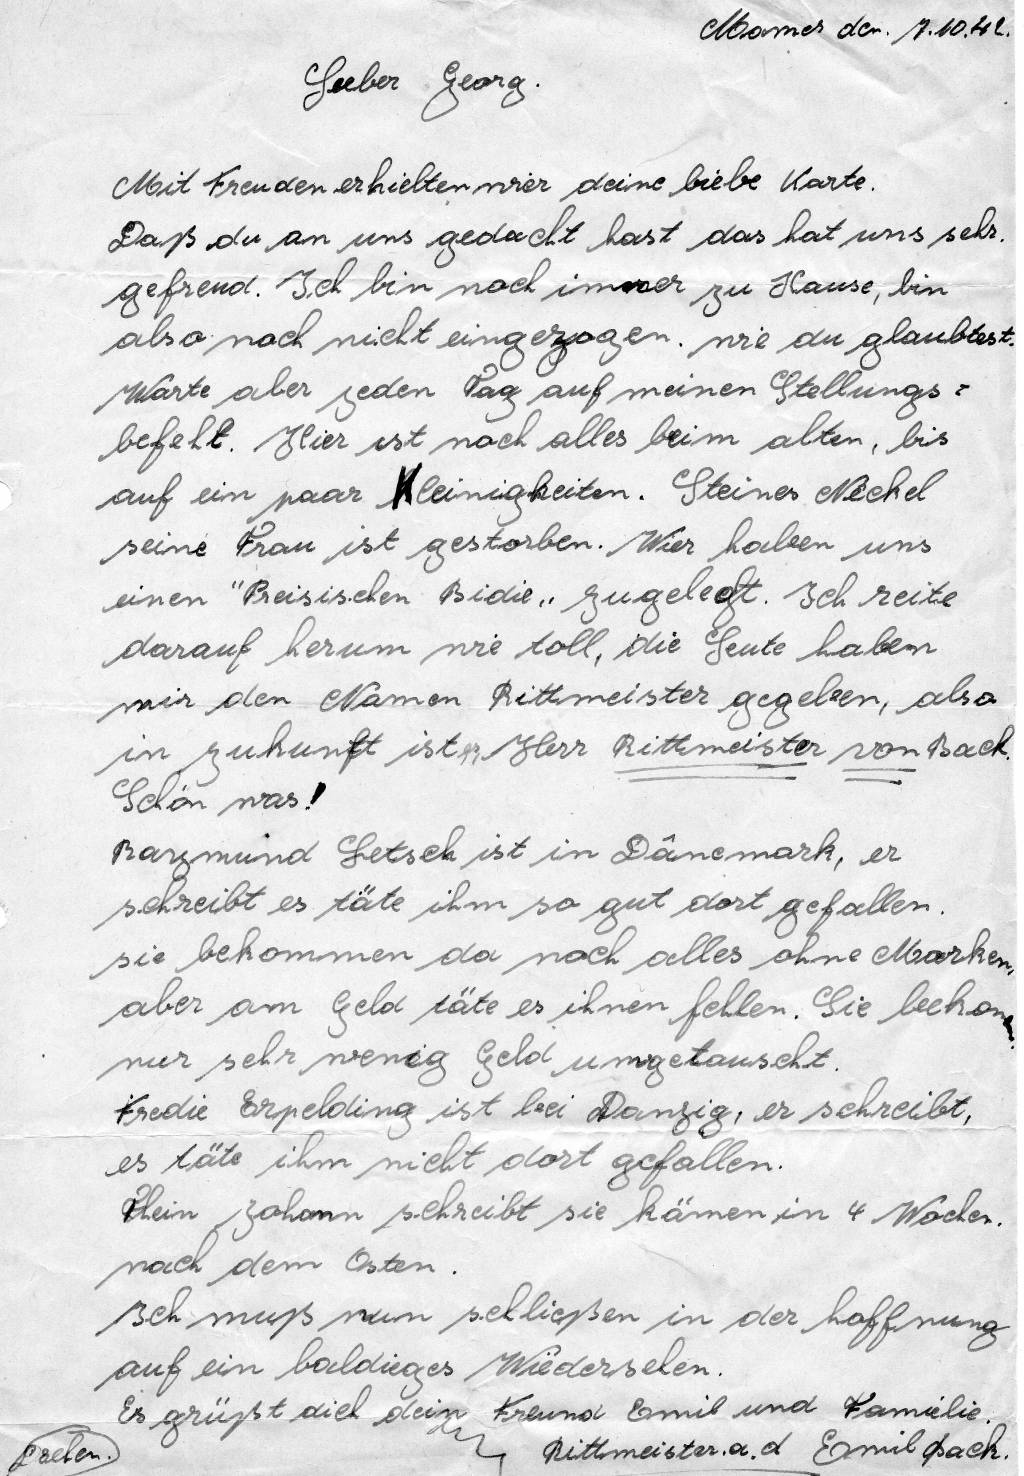 Mamer den. 7.10.42.
Lieber Georg.
Mit Freuden erhielten wier deine liebe Karte.
Daß du an uns gedacht hast das hat uns sehr.
gefreud. Ich bin noch immer zu Hause, bin
also noch nicht eingezogen. wie du glaubtest.
Warte aber jeden Tag auf meinen Stellungs=
befehl. Hier ist noch alles beim alten, bis
auf ein paar Kleinigkeiten. Steines Nëckel
seine Frau ist gestorben. Wier haben uns
einen "Preisischen Bidie„ zugelegt. Ich reite
darauf herum wie toll, die Leute haben
mir den Namen Rittmeister gegeben, also
in zukunft ist Herr Rittmeister von Back.
Schön was!
Razmund Letsch ist in Dänemark, er
schreibt es täte ihm so gut dort gefallen.
sie bekommen da noch alles ohne Marken,
aber am Geld täte es ihnen fehlen. Sie
nur sehr wenig Geld umgetauscht.
Fredie Erpelding ist bei Danzig, er schreibt,
es täte ihm nicht dort gefallen.
Johann schreibt sie kämen in 4 Wochen.
nach dem Osten.
Ich muß nun schließen in der hoffnung
auf ein baldieges Wiedersehen.
Es grüßt dich dein Freund Emil und Familie.
Rittmeister.a.d Emil Back.